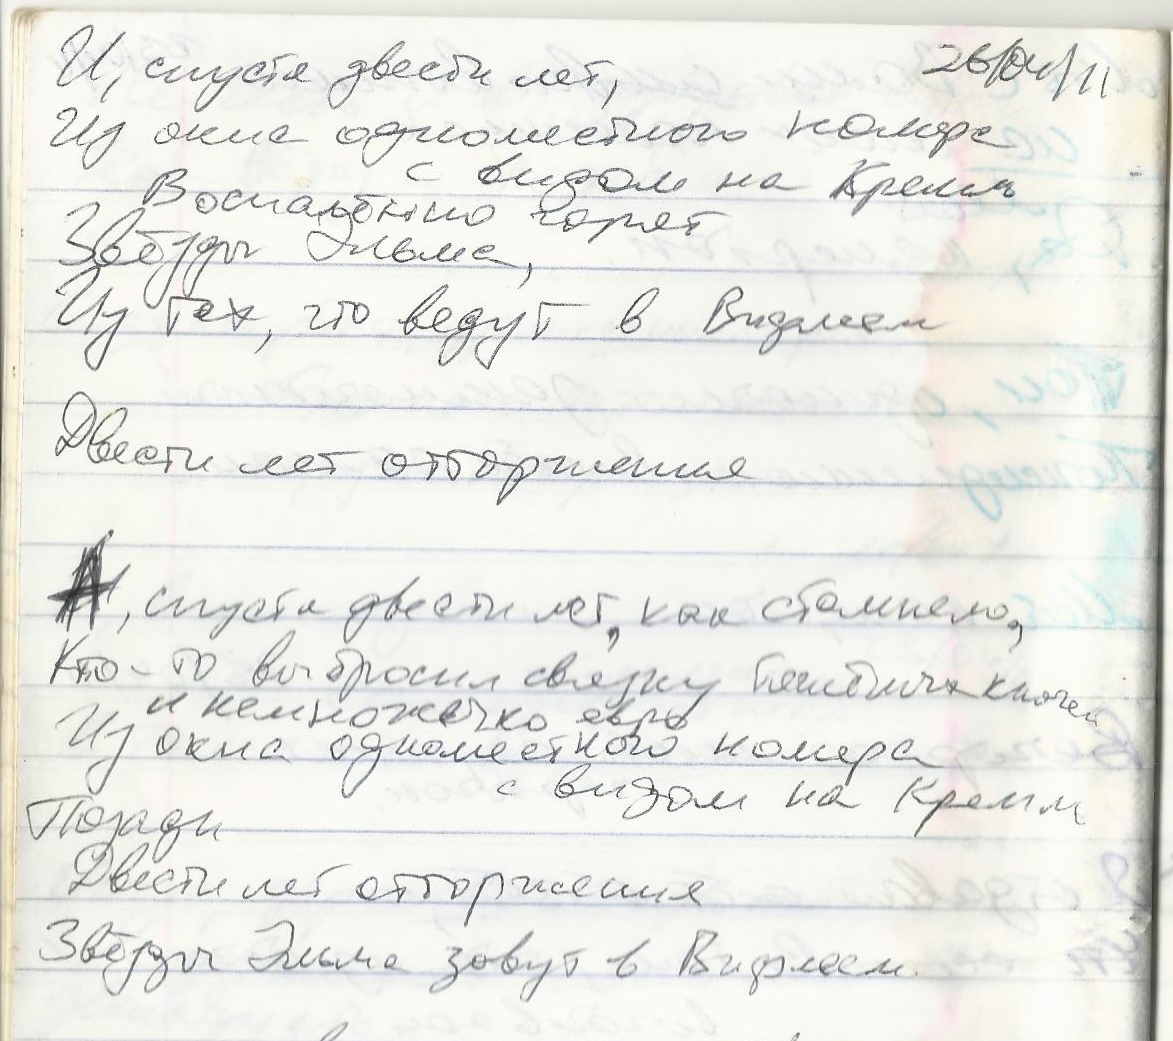 26/04/11
И, спустя двести лет,
Из окна одноместного номера
с видом на Кремль
Воспалённо горят
Звёзды Эльма,
Из тех, что ведут в Вифлеем
Двести лет отторжения
А, спустя двести лет, как стемнело,
Кто-то выбросил связку ключей
и немножечко евро
Из окна одноместного номера
с видом на Кремль
Позади
Двести лет отторжения
Звёзды Эльма зовут в Вифлеем.